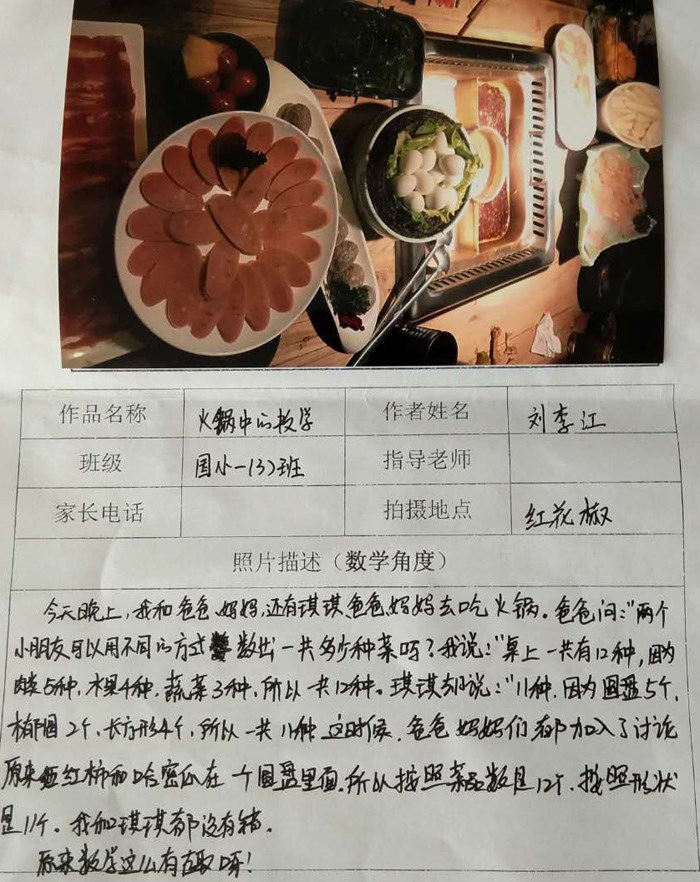 作品名称 火锅中的数学 作者姓名 刘李江
班级 国小一(3)班 指导老师
家长电话 拍摄地点 红花椒
照片描述（数学角度）
今天晚上，我和爸爸、妈妈，还有琪琪爸爸妈妈去吃火锅。爸爸问："两个
小朋友可以用不同的方式数出一共多少种菜吗？我说："桌上一共有12种，因为
肉类5种，水果4种，蔬菜3种，所以一共12种。琪琪却说："11种，因为圆盘5个，
椭圆2个，长方形4个，所以一共11种 这时候，爸爸妈妈们都加入了讨论
原来 红柿和哈密瓜在一个圆盘里面，所以按照菜数是12个，按照形状
是11个。我和琪琪都没有错。
原来数学这么有趣呀！